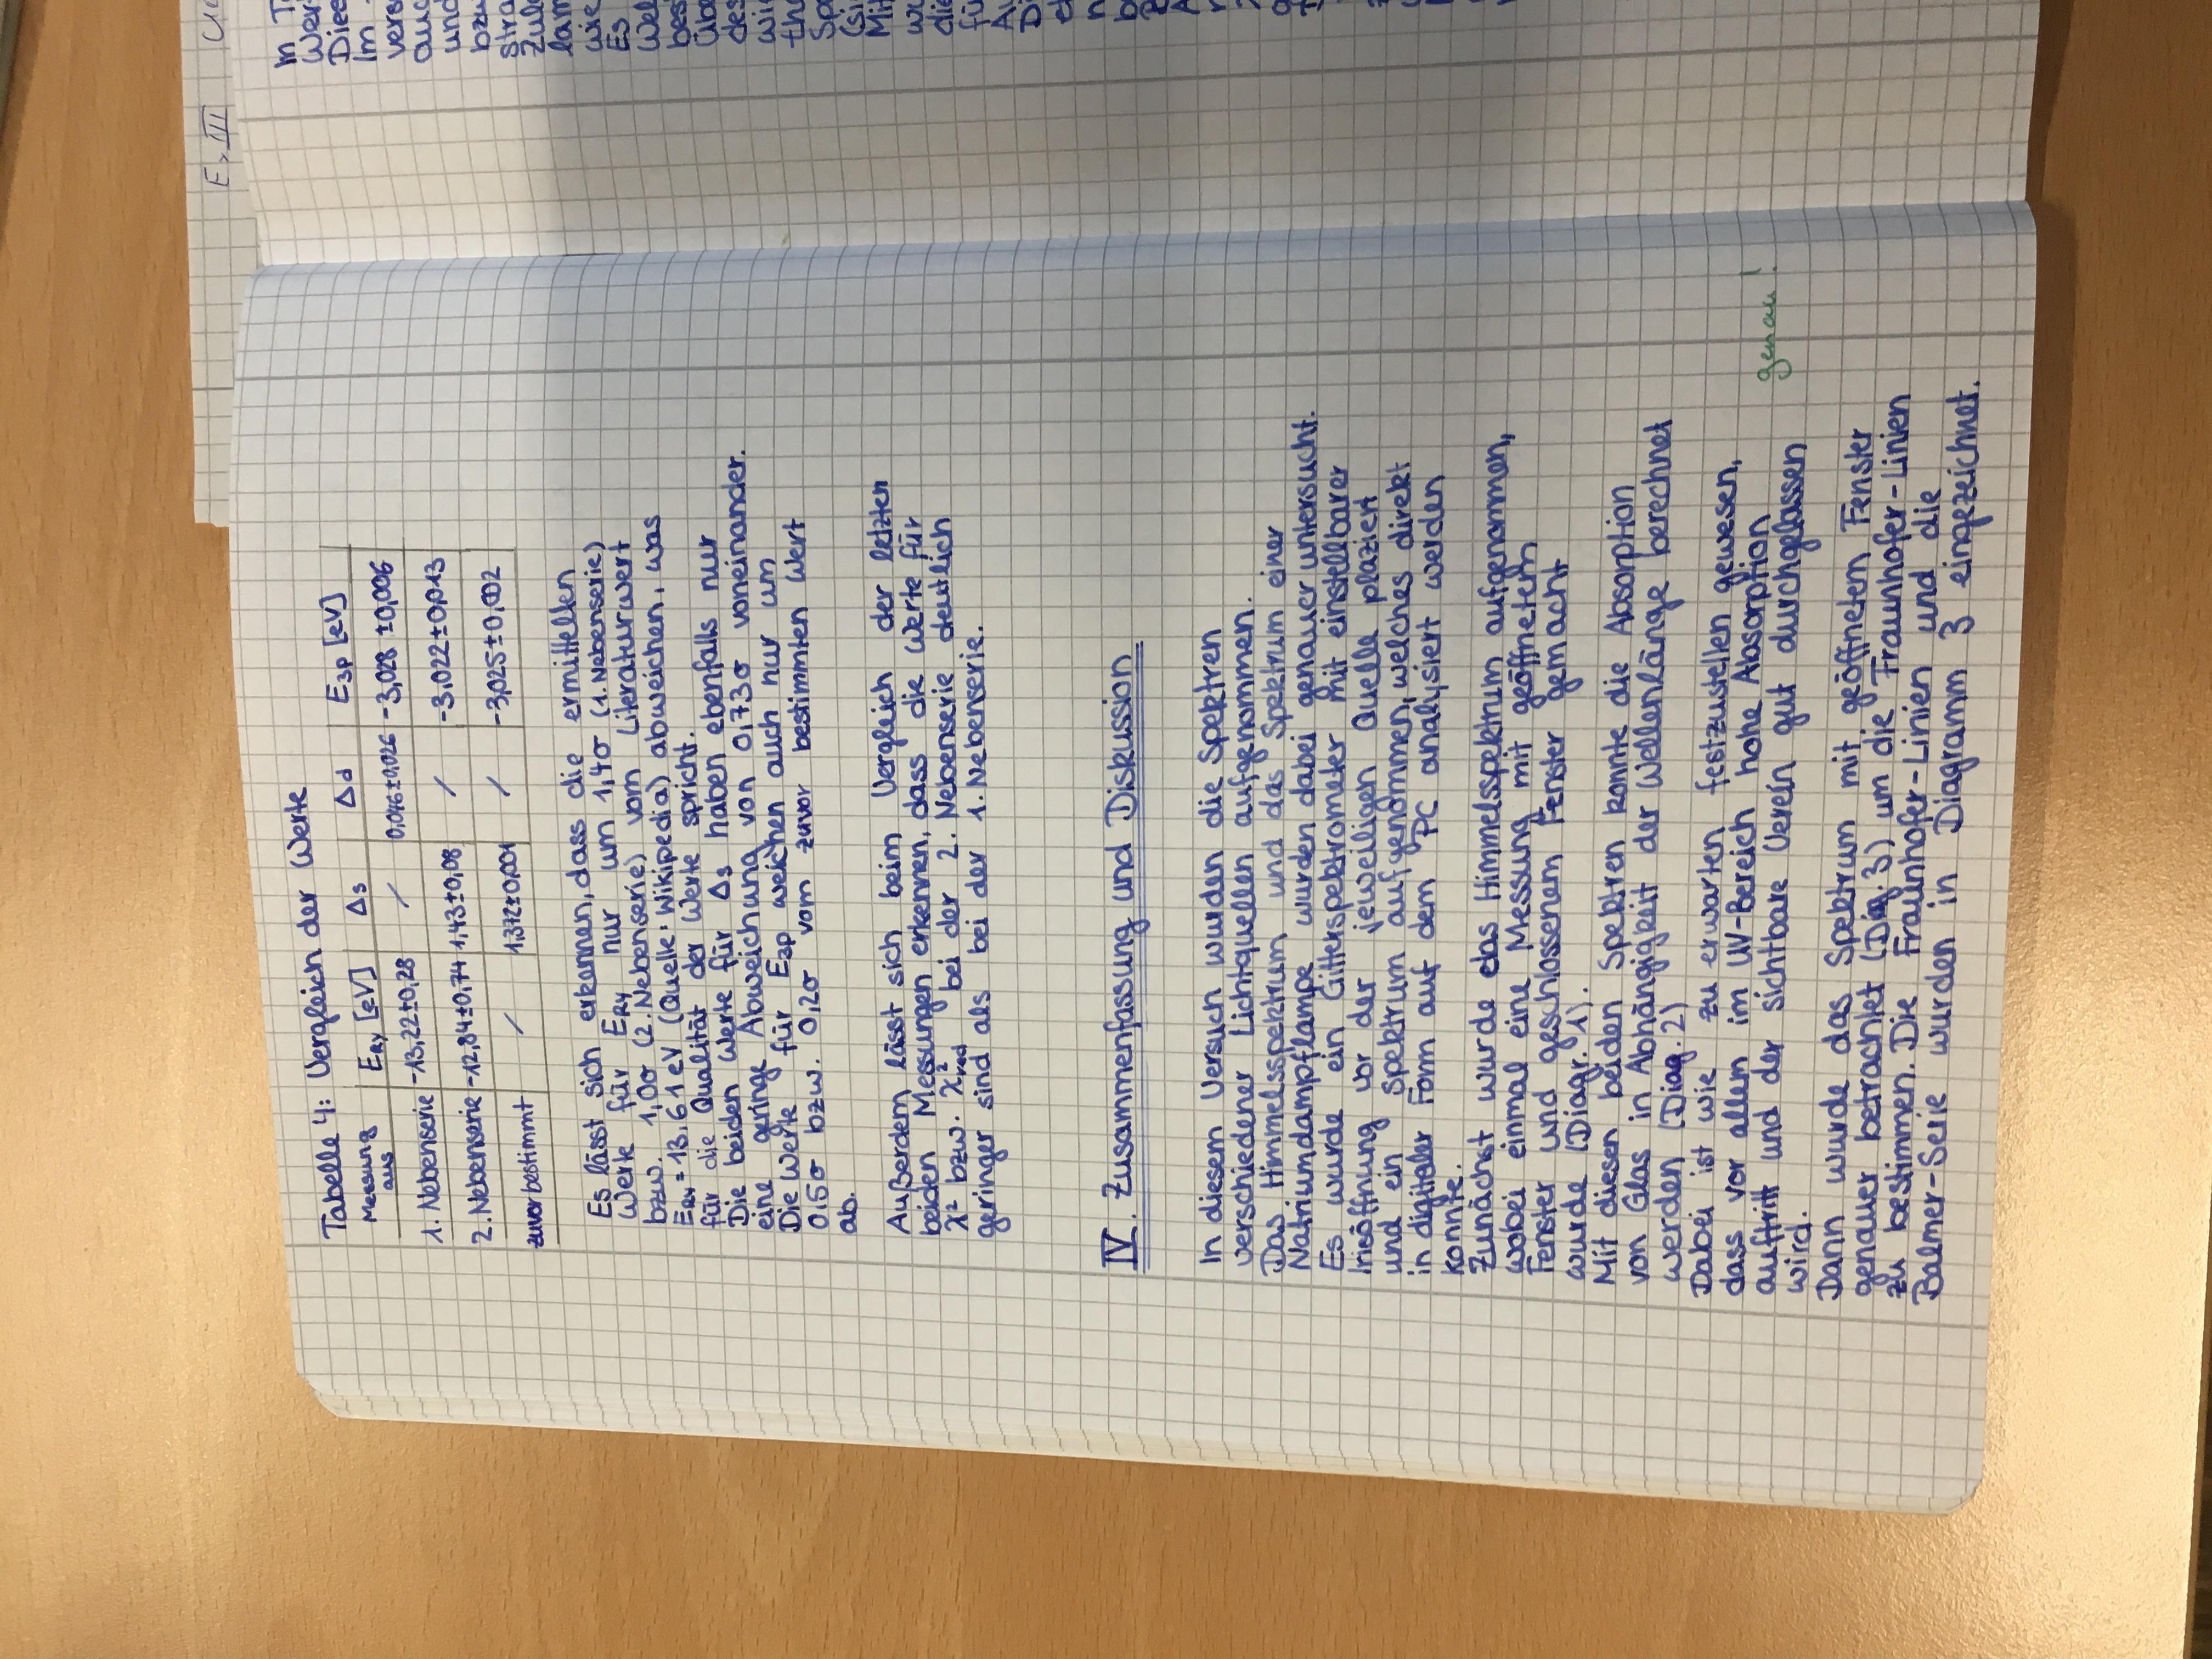 E>III
Tabelle 4: Vergleich der Werte
Messung aus | E_Ry [eV] | Δs | Δd | E_3p [eV]
1. Nebenserie | -13,22±0,28 | / | 0,046±0,026 | -3,028 ±0,006
2. Nebenserie | -12,84±0,74 | 1,43±0,08 | / | -3,022±0,013
zuvor bestimmt | / | 1,372±0,001 | / | -3,025±0,002
Es lässt sich erkennen, dass die ermittelten
Werte für E_Ry nur um 1,4σ (1. Nebenserie)
bzw. 1,0σ (2. Nebenserie) vom Literaturwert
E_Ry = 13,61 eV (Quelle: Wikipedia) abweichen, was
für die Qualität der Werte spricht.
Die beiden Werte für Δs haben ebenfalls nur
eine geringe Abweichung von 0,73σ voneinander.
Die Werte für E_3p weichen auch nur um
0,5σ bzw. 0,2σ vom zuvor bestimmten Wert
ab.
Außerdem lässt sich beim Vergleich der letzten
beiden Messungen erkennen, dass die Werte für
χ² bzw. χ²_red bei der 2. Nebenserie deutlich
geringer sind als bei der 1. Nebenserie.
IV. Zusammenfassung und Diskussion
In diesem Versuch wurden die Spektren
verschiedener Lichtquellen aufgenommen.
Das Himmelsspektrum und das Spektrum einer
Natriumdampflampe wurden dabei genauer untersucht.
Es wurde ein Gitterspektrometer mit einstellbarer
Irisöffnung vor der jeweiligen Quelle plaziert
und ein Spektrum aufgenommen, welches direkt
in digitaler Form auf dem PC analysiert werden
konnte.
Zunächst wurde das Himmelsspektrum aufgenommen,
wobei einmal eine Messung mit geöffnetem
Fenster und geschlossenem Fenster gemacht
wurde (Diagr. 1).
Mit diesen beiden Spektren konnte die Absorption
von Glas in Abhängigkeit der Wellenlänge berechnet
werden (Diag. 2)
Dabei ist wie zu erwarten festzustellen gewesen,
dass vor allem im UV-Bereich hohe Absorption
auftritt und der sichtbare Verein gut durchgelassen
wird.
genau!
Dann wurde das Spektrum mit geöffnetem Fenster
genauer betrachtet (Diag. 3) um die Fraunhofer-Linien
zu bestimmen. Die Fraunhofer-Linien und die
Balmer-Serie wurden in Diagramm 3 eingezeichnet.